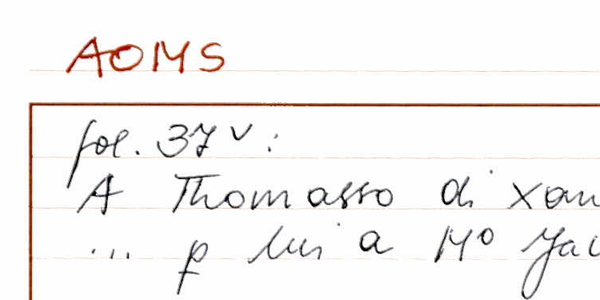 AOMS
fol. 37v:
A Thomasso di Xan
... p lui a M° Jac